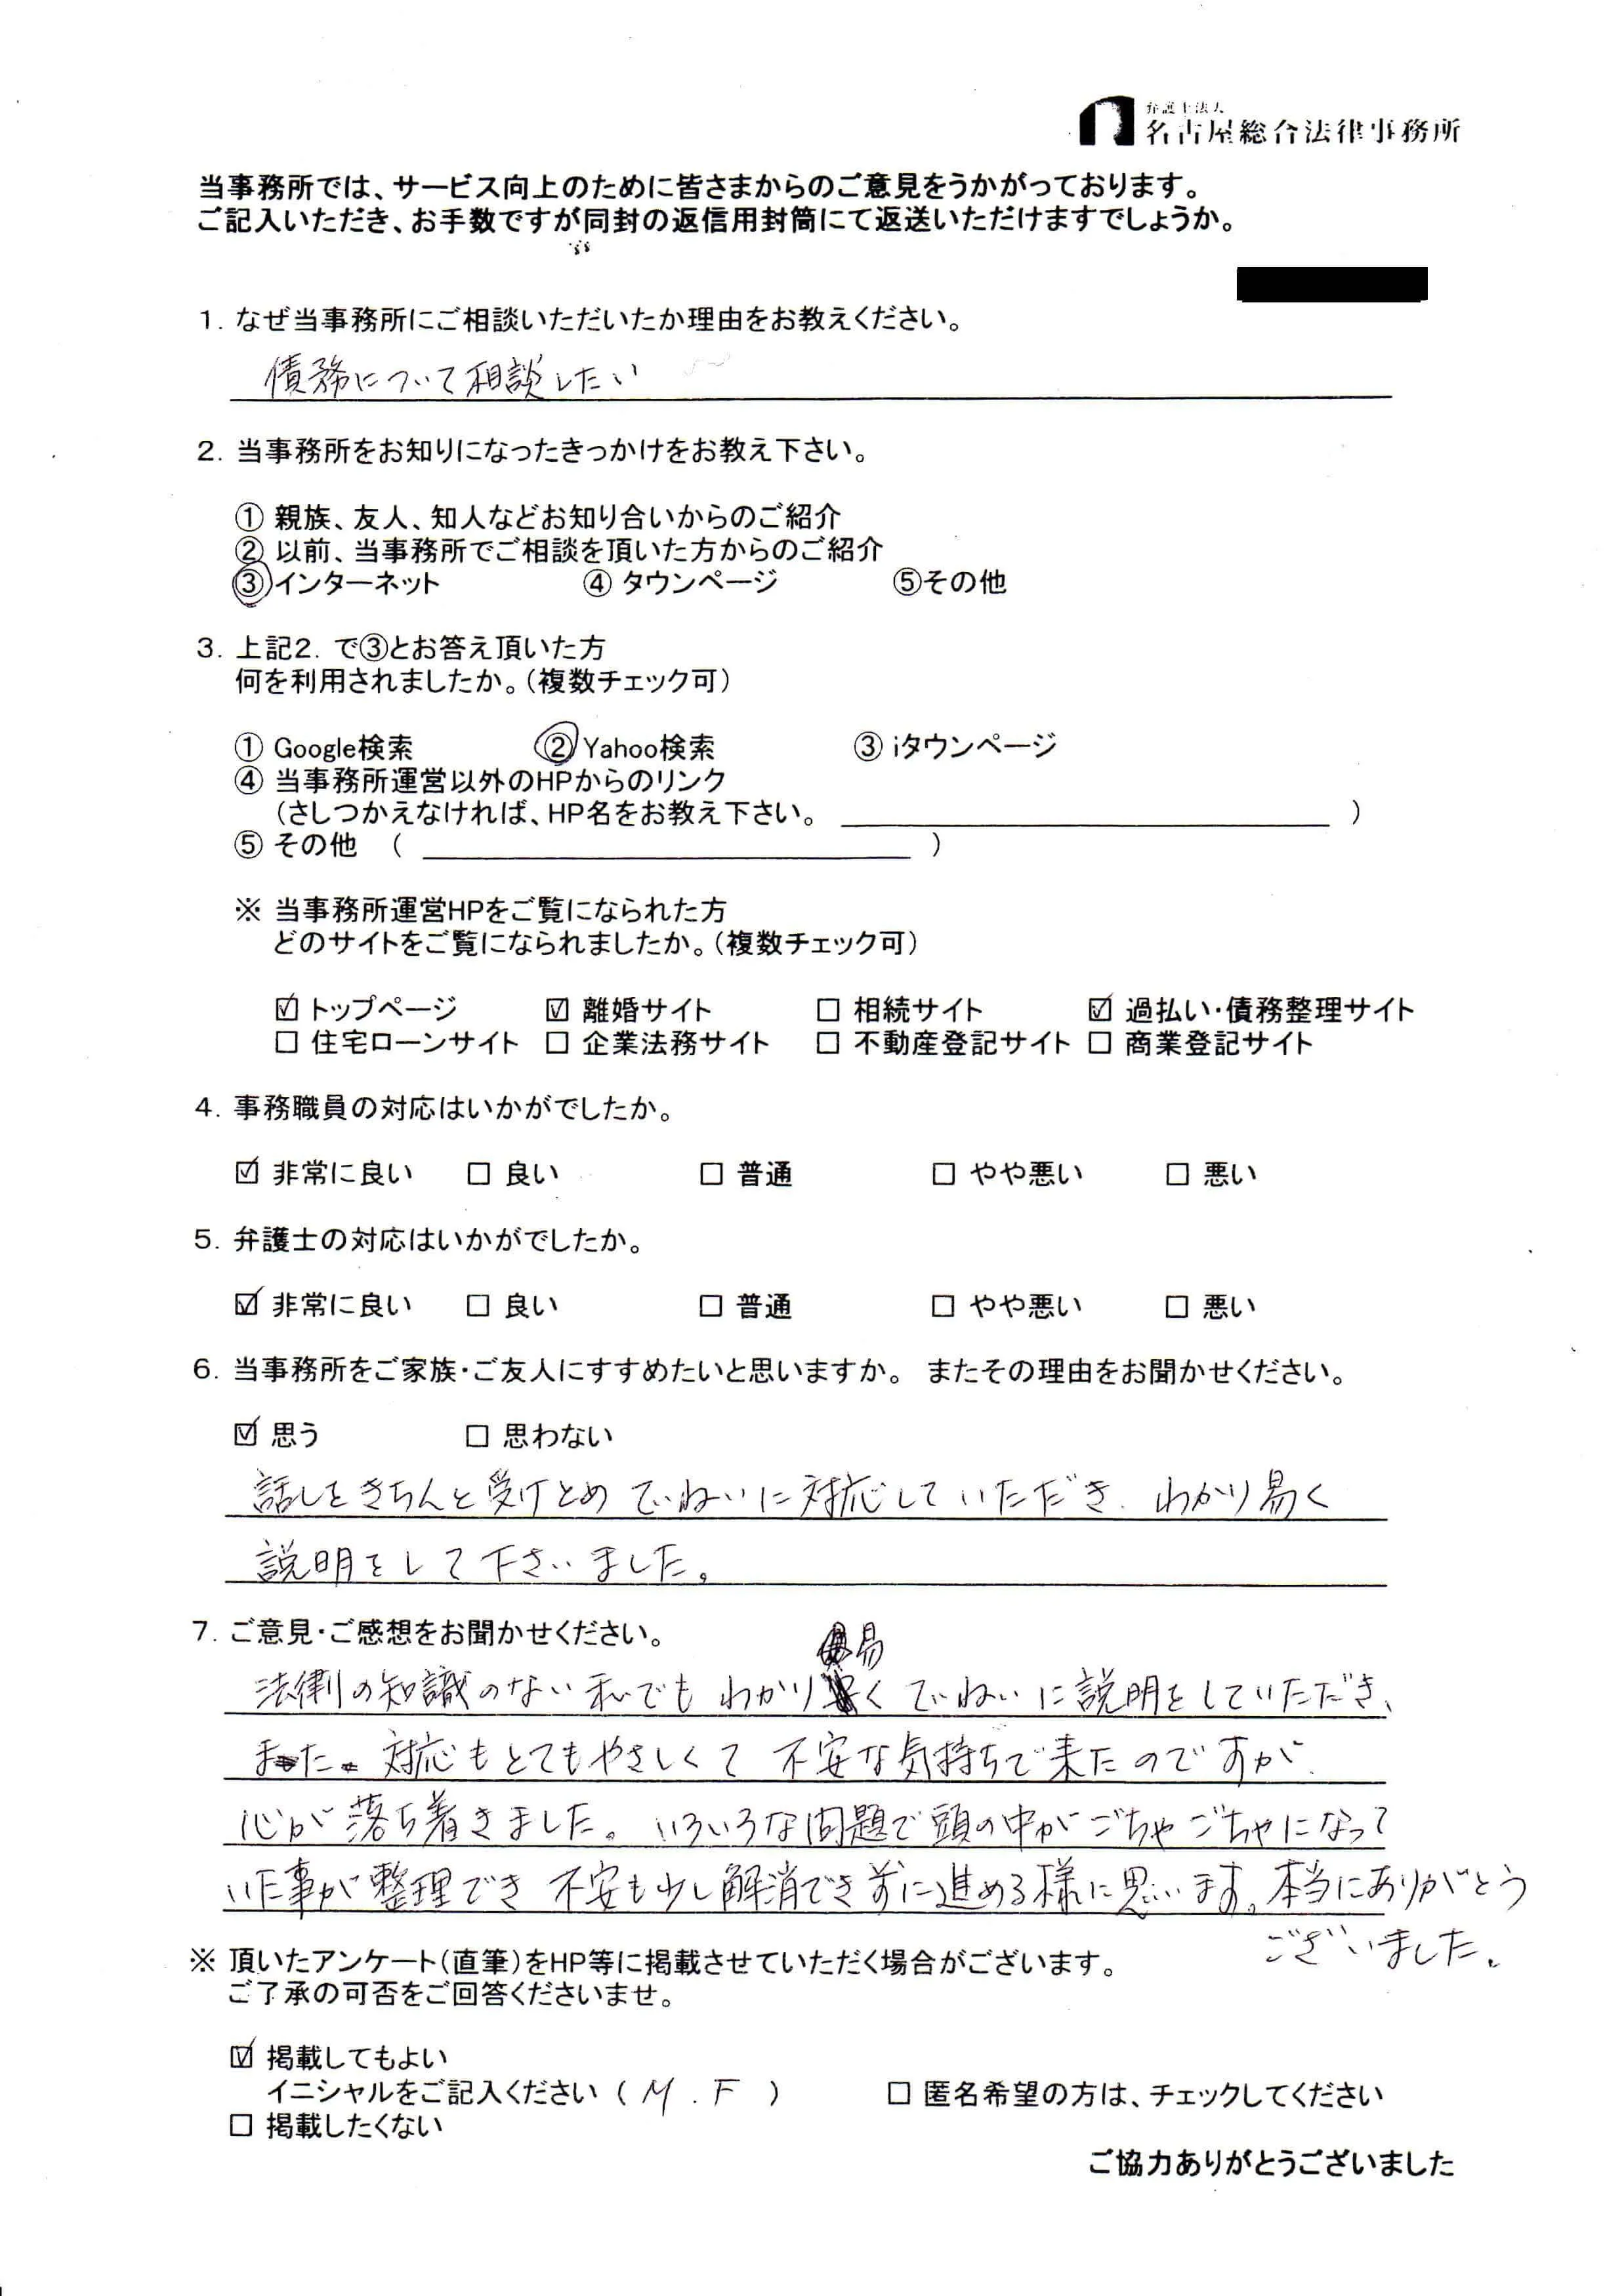 弁護士法人
名古屋総合法律事務所
当事務所では、サービス向上のために皆さまからのご意見をうかがっております。
ご記入いただき、お手数ですが同封の返信用封筒にて返送いただけますでしょうか。
1. なぜ当事務所にご相談いただいたか理由をお教えください。
債務について相談したい
2. 当事務所をお知りになったきっかけをお教え下さい。
① 親族、友人、知人などお知り合いからのご紹介
② 以前、当事務所でご相談を頂いた方からのご紹介
③インターネット ④ タウンページ ⑤その他
3. 上記2. で③とお答え頂いた方
何を利用されましたか。(複数チェック可)
① Google検索 ② Yahoo検索 ③ iタウンページ
④ 当事務所運営以外のHPからのリンク
(さしつかえなければ、HP名をお教え下さい。 )
⑤ その他 ( )
※ 当事務所運営HPをご覧になられた方
どのサイトをご覧になられましたか。(複数チェック可)
☑ トップページ ☑ 離婚サイト □ 相続サイト ☑ 過払い・債務整理サイト
□ 住宅ローンサイト □ 企業法務サイト □ 不動産登記サイト □ 商業登記サイト
4. 事務職員の対応はいかがでしたか。
☑ 非常に良い □ 良い □ 普通 □ やや悪い □ 悪い
5. 弁護士の対応はいかがでしたか。
☑ 非常に良い □ 良い □ 普通 □ やや悪い □ 悪い
6. 当事務所をご家族・ご友人にすすめたいと思いますか。 またその理由をお聞かせください。
☑ 思う □ 思わない
話しをきちんと受けとめ ていねいに対応して いただき、わかり易く
説明をして下さいました。
7. ご意見・ご感想をお聞かせください。
法律の知識のない私でも わかり易く ていねいに説明をしていただき、
また 対応もとてもやさしくて 不安な気持ちで来たのですが、
心が落ち着きました。いろいろな問題で頭の中がごちゃごちゃになって
いた事が整理でき 不安も少し解消でき前に進める様に思います。本当にありがとう
ございました。
※ 頂いたアンケート(直筆)をHP等に掲載させていただく場合がございます。
ご了承の可否をご回答くださいませ。
☑ 掲載してもよい
イニシャルをご記入ください ( M . F ) □ 匿名希望の方は、チェックしてください
□ 掲載したくない
ご協力ありがとうございました